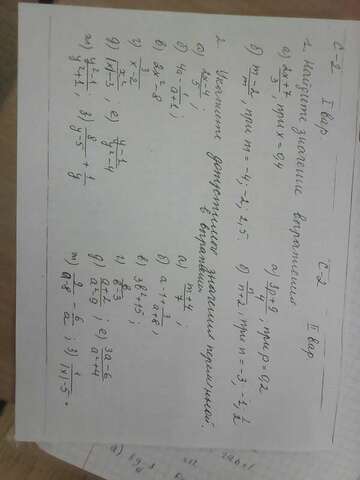 С-2 I вар
1. Найдите значение выражения
а) 2x+7/3, при x=0,4
б) m-2/m, при m=-4; -2; 2,5.
2. Укажите допустимые значения переменной в выражении
а) 2x-4/5;
б) 4a-1/a+1;
в) 2x²-8
г) 3/x-2
д) x²/|x|-3; е) y-1/y²-4
ж) y²-1/y²+1; з) 8/y-5 + 1/y
С-2 II вар
а) 3p+9/4, при p=0,2
б) n/n+2, при n=-3; -1; 1/2
а) m+4/7;
б) a-1+3/a+8;
в) 3b²+15;
г) 8/b-3
д) a+2/a²-9; е) 3a-6/a²+4
ж) 9/a-8 - 6/a; з) 1/|x|-5